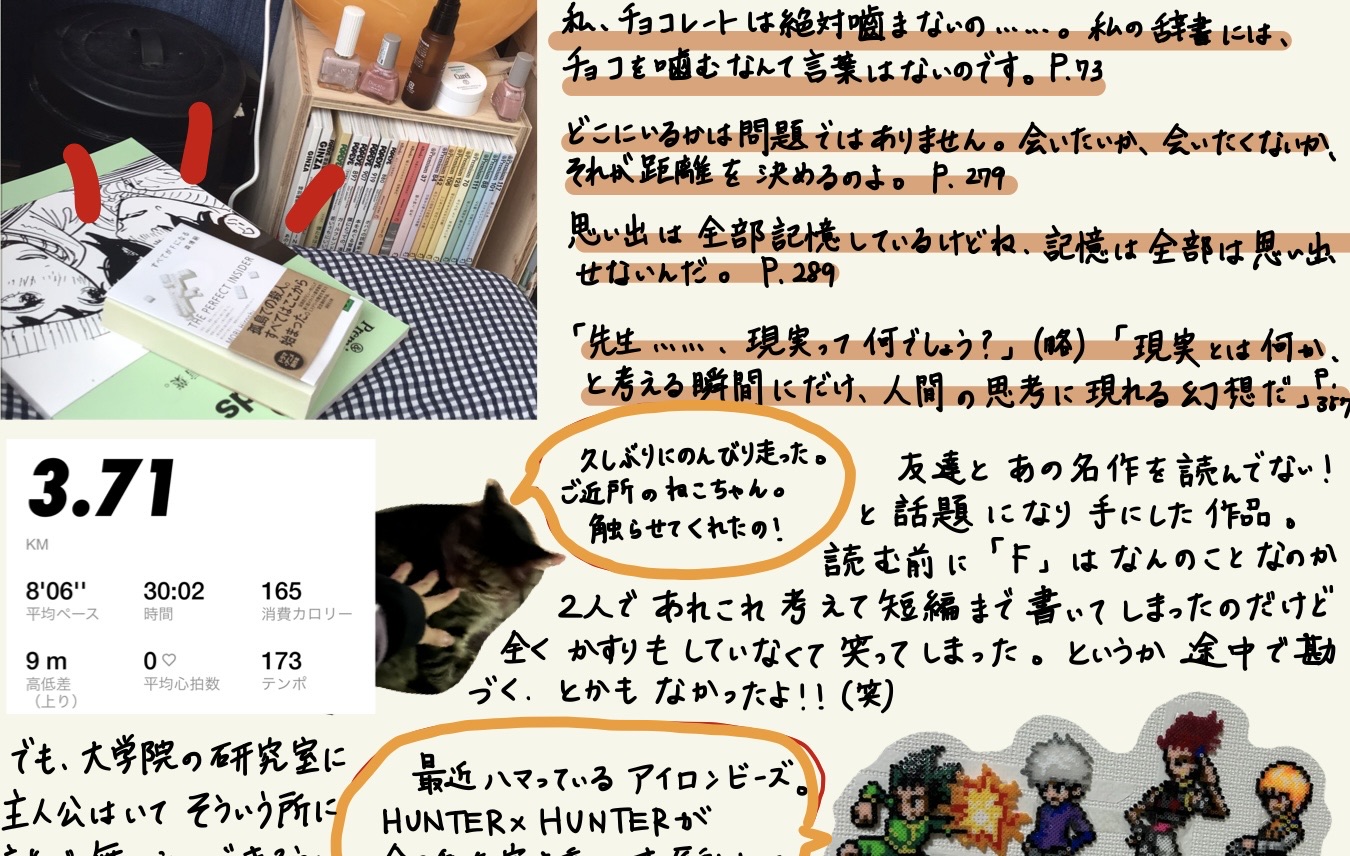 私、チョコレートは絶対噛まないの……。私の辞書には、
チョコを噛むなんて言葉はないのです。P.73
どこにいるかは問題ではありません。会いたいか、会いたくないか、
それが距離を決めるのよ。P.279
思い出は全部記憶しているけどね、記憶は全部は思い出
せないんだ。P.289
「先生……、現実って何でしょう?」(略)「現実とは何か、
と考える瞬間にだけ、人間の思考に現れる幻想だ」P.357
すべてがFになる
THE PERFECT INSIDER
孤島での殺人。
すべてはここから
始まった。
GINZA
Premi
ds
3.71
KM
8'06''
30:02
165
平均ペース
時間
消費カロリー
9 m
0♡
173
高低差
(上り)
平均心拍数
テンポ
久しぶりにのんびり走った。
ご近所のねこちゃん。
触らせてくれたの!
友達とあの名作を読んでない!
と話題になり手にした作品。
読む前に「F」はなんのことなのか
2人であれこれ考えて短編まで書いてしまったのだけど
全くかすりもしていなくて笑ってしまった。というか途中で勘
づく、とかもなかったよ!!(笑)
でも、大学院の研究室に
主人公はいてそういう所に
最近ハマっているアイロンビーズ。
HUNTER×HUNTERが